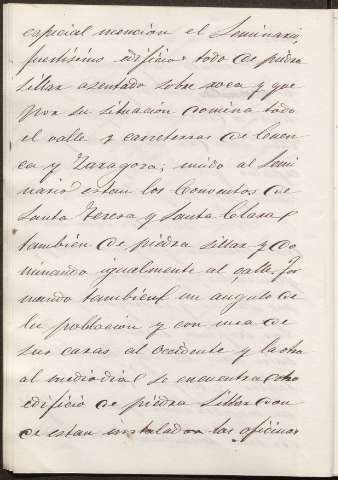 especial mención el Seminario,
fuertísimo edificio todo de piedra
sillar asentado sobre roca y que
por su situación domina todo
el valle y carreteras de Cuen
ca y Zaragoza; unido al Semi
nario estan los Conventos de
Santa Teresa y Santa Clara
también de piedra sillar y do
minando igualmente al valle. For
mando también un angulo de
la población y con una de
sus caras al Occidente y la otra
al mediodia se encuentra otro
edificio de piedra Sillar don
de estan instaladas las oficinas